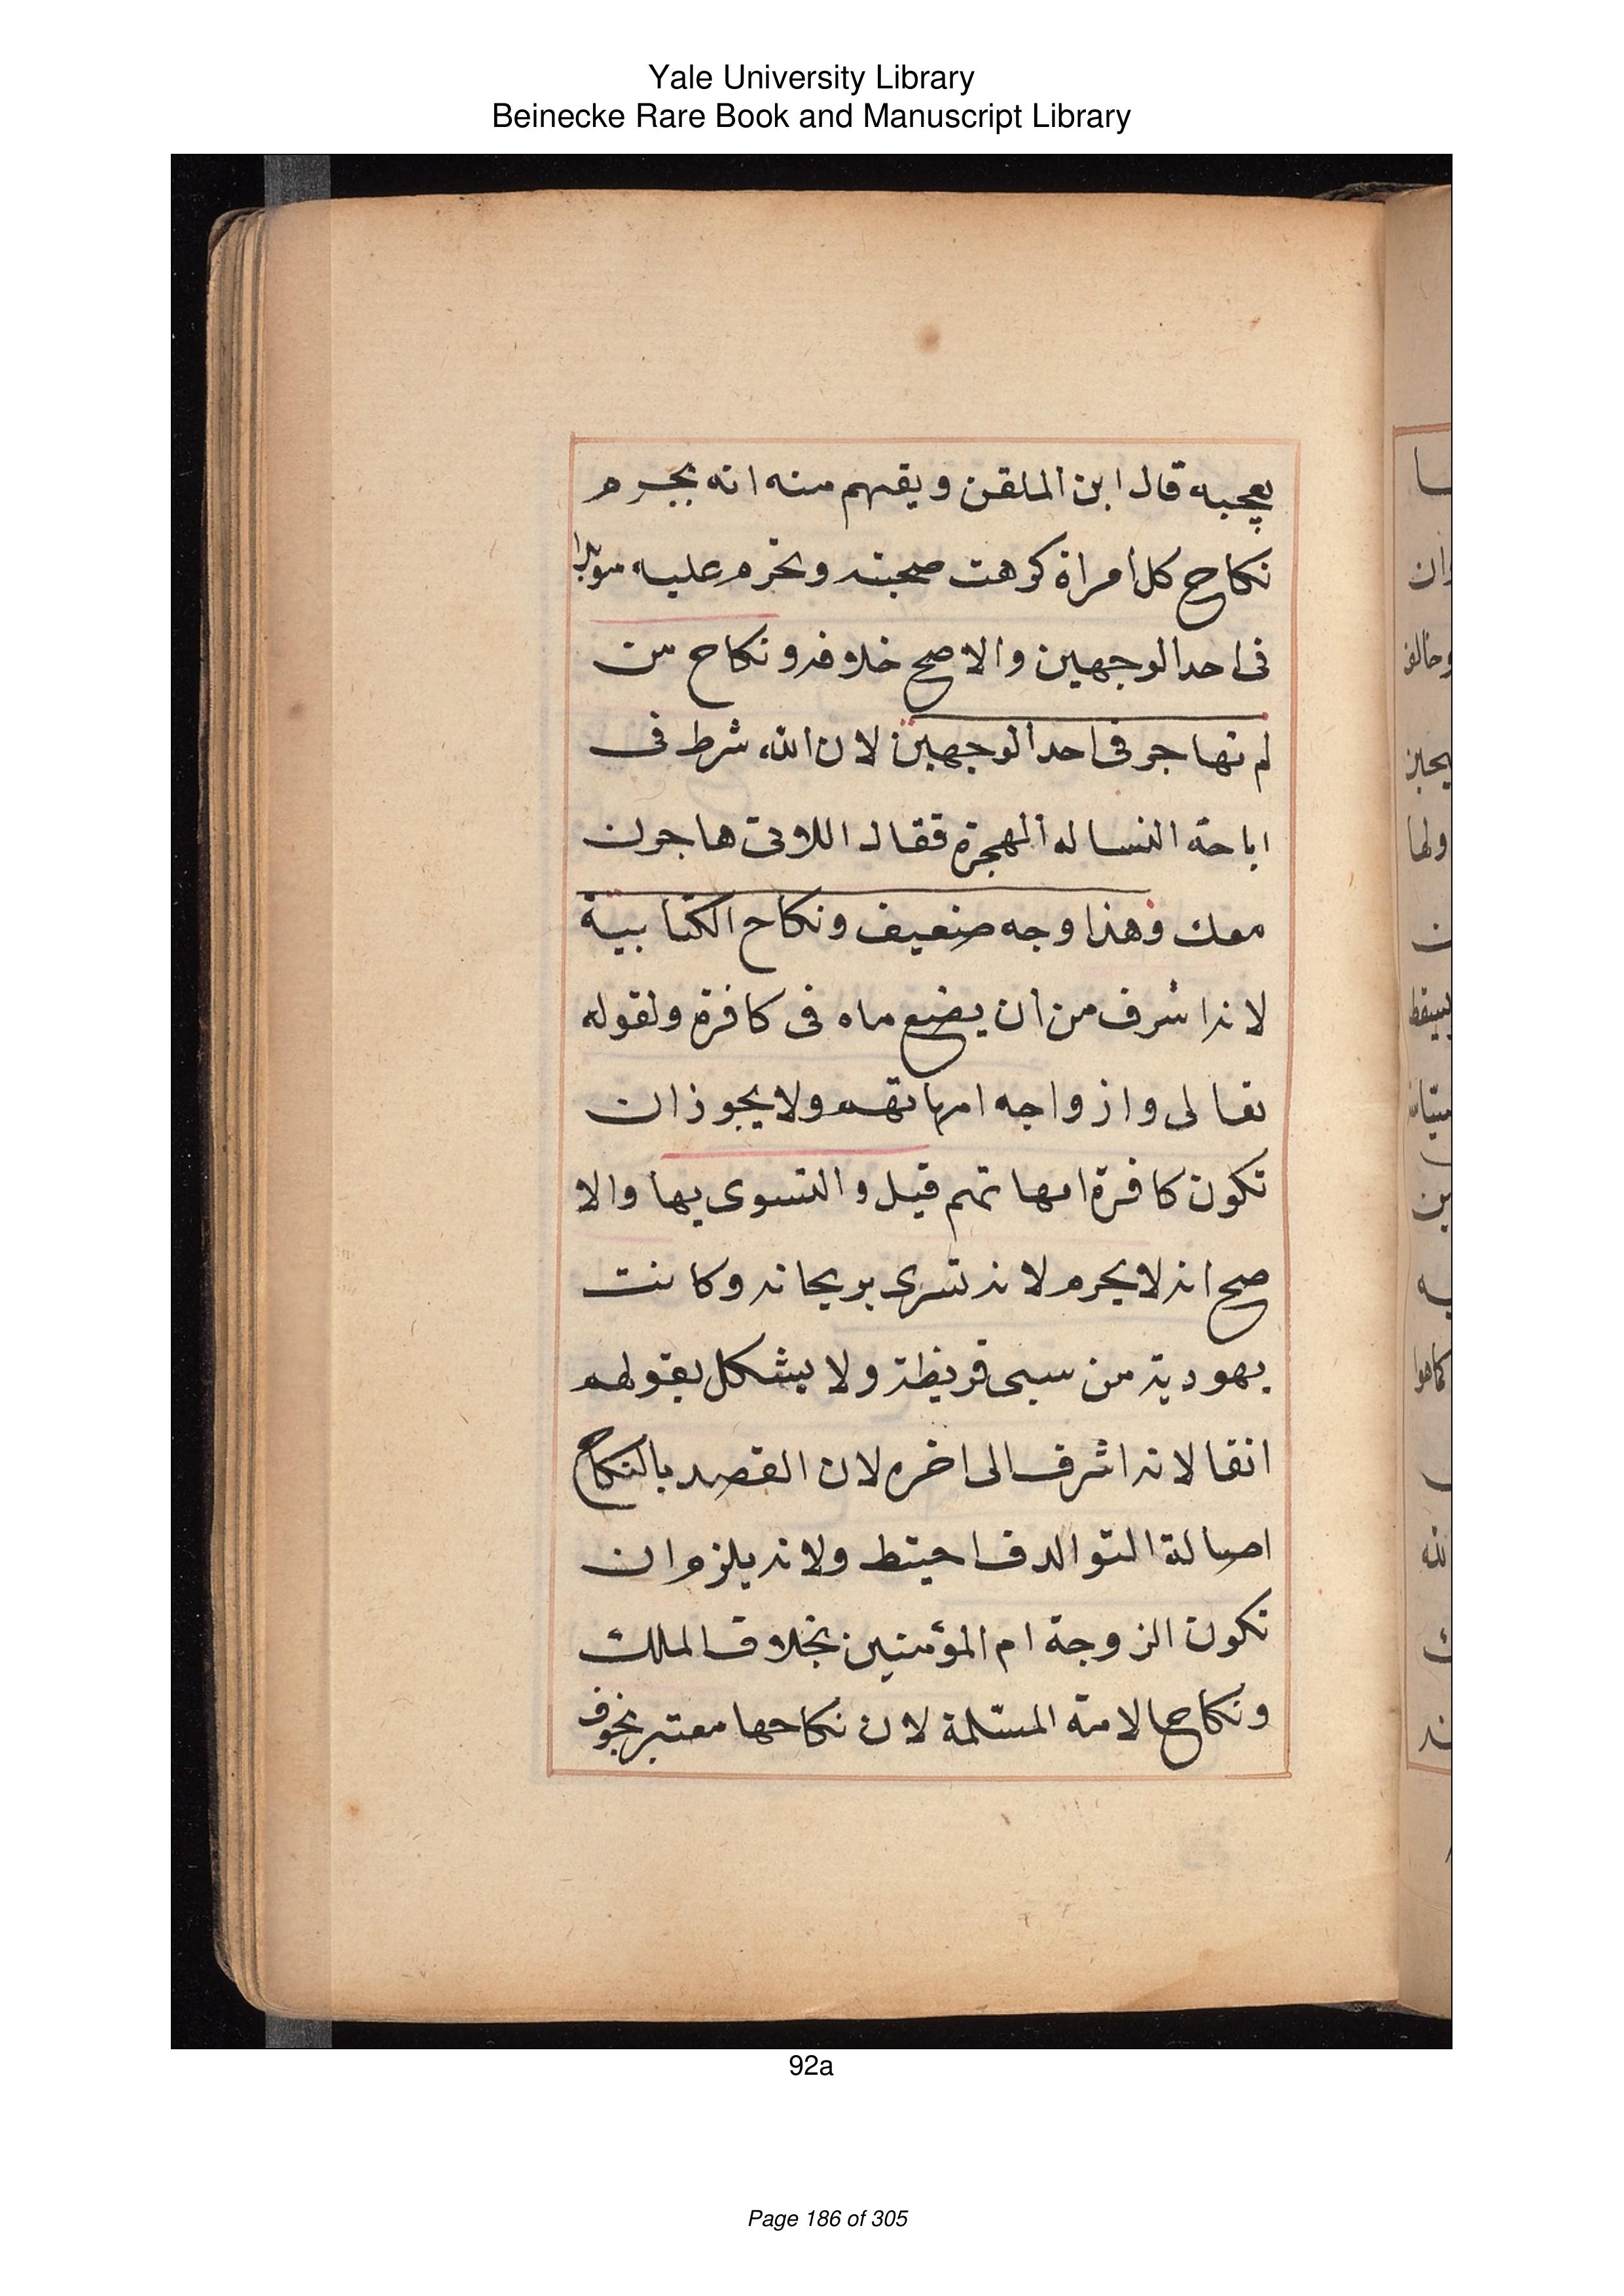 Yale University Library
Beinecke Rare Book and Manuscript Library
يعجبه قال ابن الملقن ويفهم منه انه يحرم
نكاح كل امراة كرهت صحبته وتحرم عليه مؤبدا
فى احد الوجهين والاصح خلافه ونكاح من
لم تهاجر فى احد الوجهين لان الله شرط فى
اباحة النسا له الهجرة فقال اللاتى هاجرن
معك وهذا وجه ضعيف ونكاح الكتابية
لانه اشرف من ان يضع ماه فى كافرة ولقوله
تعالى وازواجه امهاتهم ولا يجوز ان
تكون كافرة امهاتهم قيل والتسرى بها والا
صح انه لا يحرم لانه تسرى بريحانه وكانت
يهودية من سبى قريظة ولا يشكل بقولهم
انفا لانه اشرف الى اخره لان القصد بالنكاح
اصالة التوالد فاحيتط ولانه يلزم ان
تكون الزوجة ام المؤمنين بخلاف الملك
ونكاح الامة المسلمة لان نكاحها معتبر بخوف
92a
Page 186 of 305